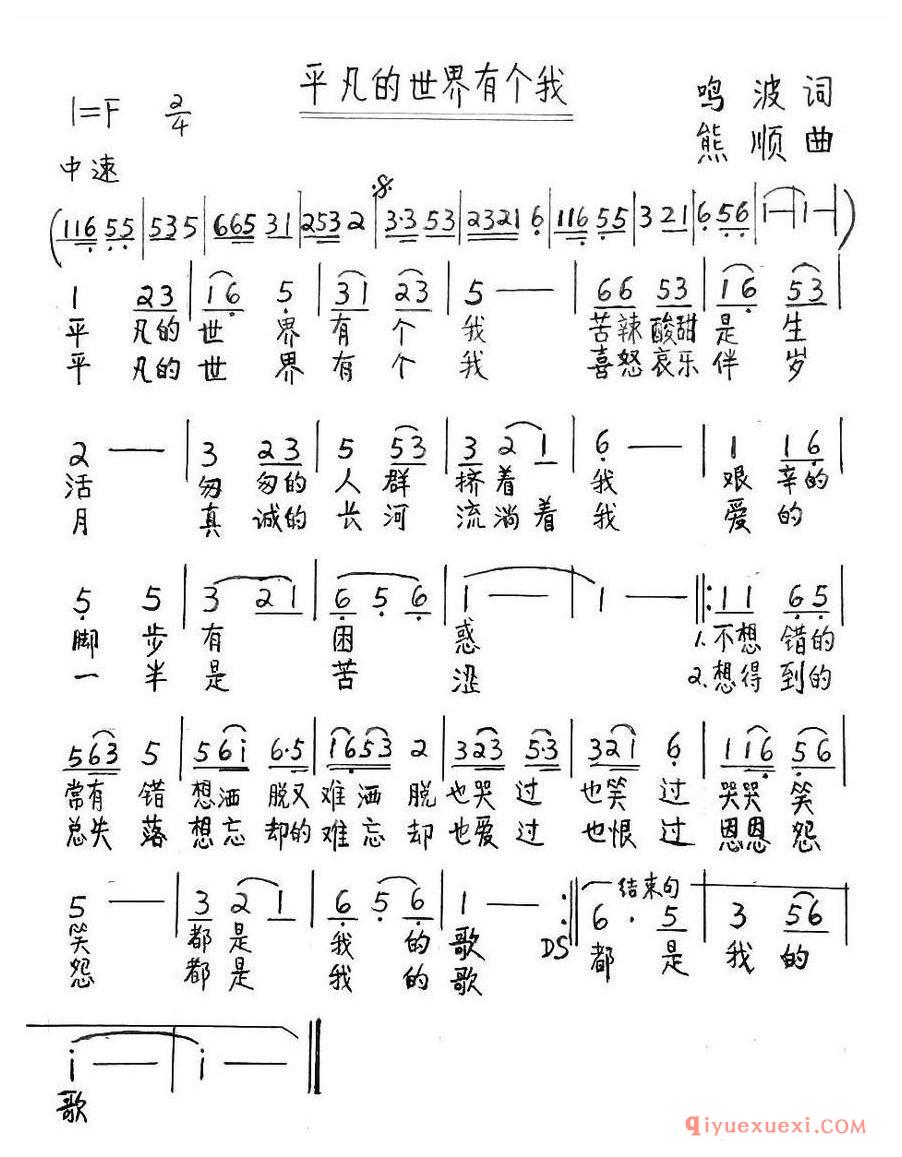 平凡的世界有个我
1=F 2/4
鸣波词
中速
熊顺曲
(116 55|535|665 31|253 2|3·3 53|2321 6|116 55|3 21|6 56|1—|1—|)
1 23|16 5|31 23|5 —|66 53|16 53|
平 凡的 世 界 有 个 我 苦辣 酸甜 是 生
平 凡的 世 界 有 个 我 喜怒 哀乐 伴 岁
2 —|3 23|5 53|3 2 1|6 —|1 16|
活 匆 匆的 人 群 挤 着 我 艰 辛的
月 真 诚的 长 河 流 淌 着 我 爱 的
5 5|3 21|6 5 6|1 —|1 —|:11 65|
脚 步 有 困 惑 1.不想 错的
一 半 是 苦 涩 2.想得 到的
563 5|56i 6·5|1653 2|323 5·3|321 6|116 56|
常有 错 想洒 脱又 难洒 脱 也哭 过 也笑 过 哭哭 笑
总失 落 想忘 却的 难忘 却 也爱 过 也恨 过 恩恩 怨
结束句
5 —|3 2 1|6 5 6|1 — :|6· 5|3 56|
笑 都 是 我 的 歌 DS 都 是 我 的
怨 都 是 我 的 歌
i —|i —‖
歌
qiyuexuexi.com